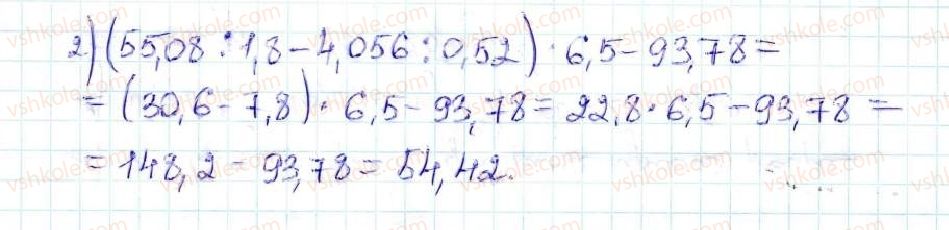 2) (55,08 : 1,8 - 4,056 : 0,52) · 6,5 - 93,78 =
= (30,6 - 7,8) · 6,5 - 93,78 = 22,8 · 6,5 - 93,78 =
= 148,2 - 93,78 = 54,42.